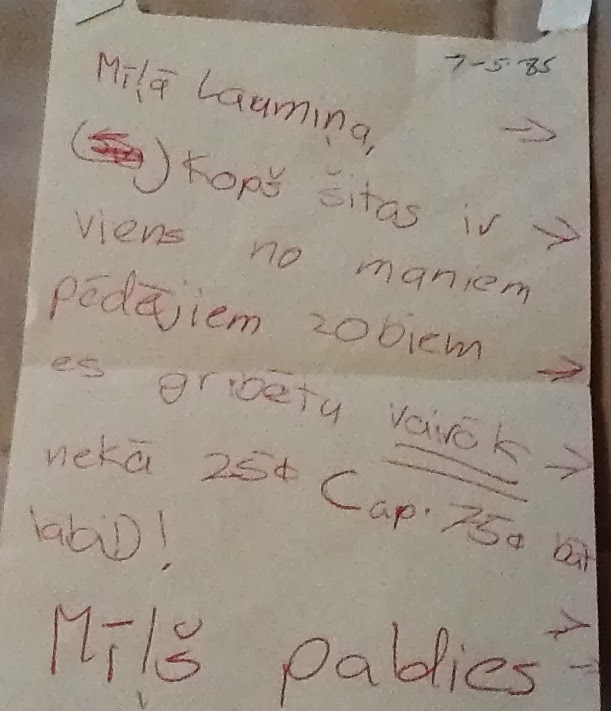 7-5-85
Mīļā Laumiņa,
Kopš šitas ir
viens no maniem
pēdējiem zobiem
es gribētu vairāk
nekā 25¢ (ap. 75¢ būt
labi)!
Mīļš paldies